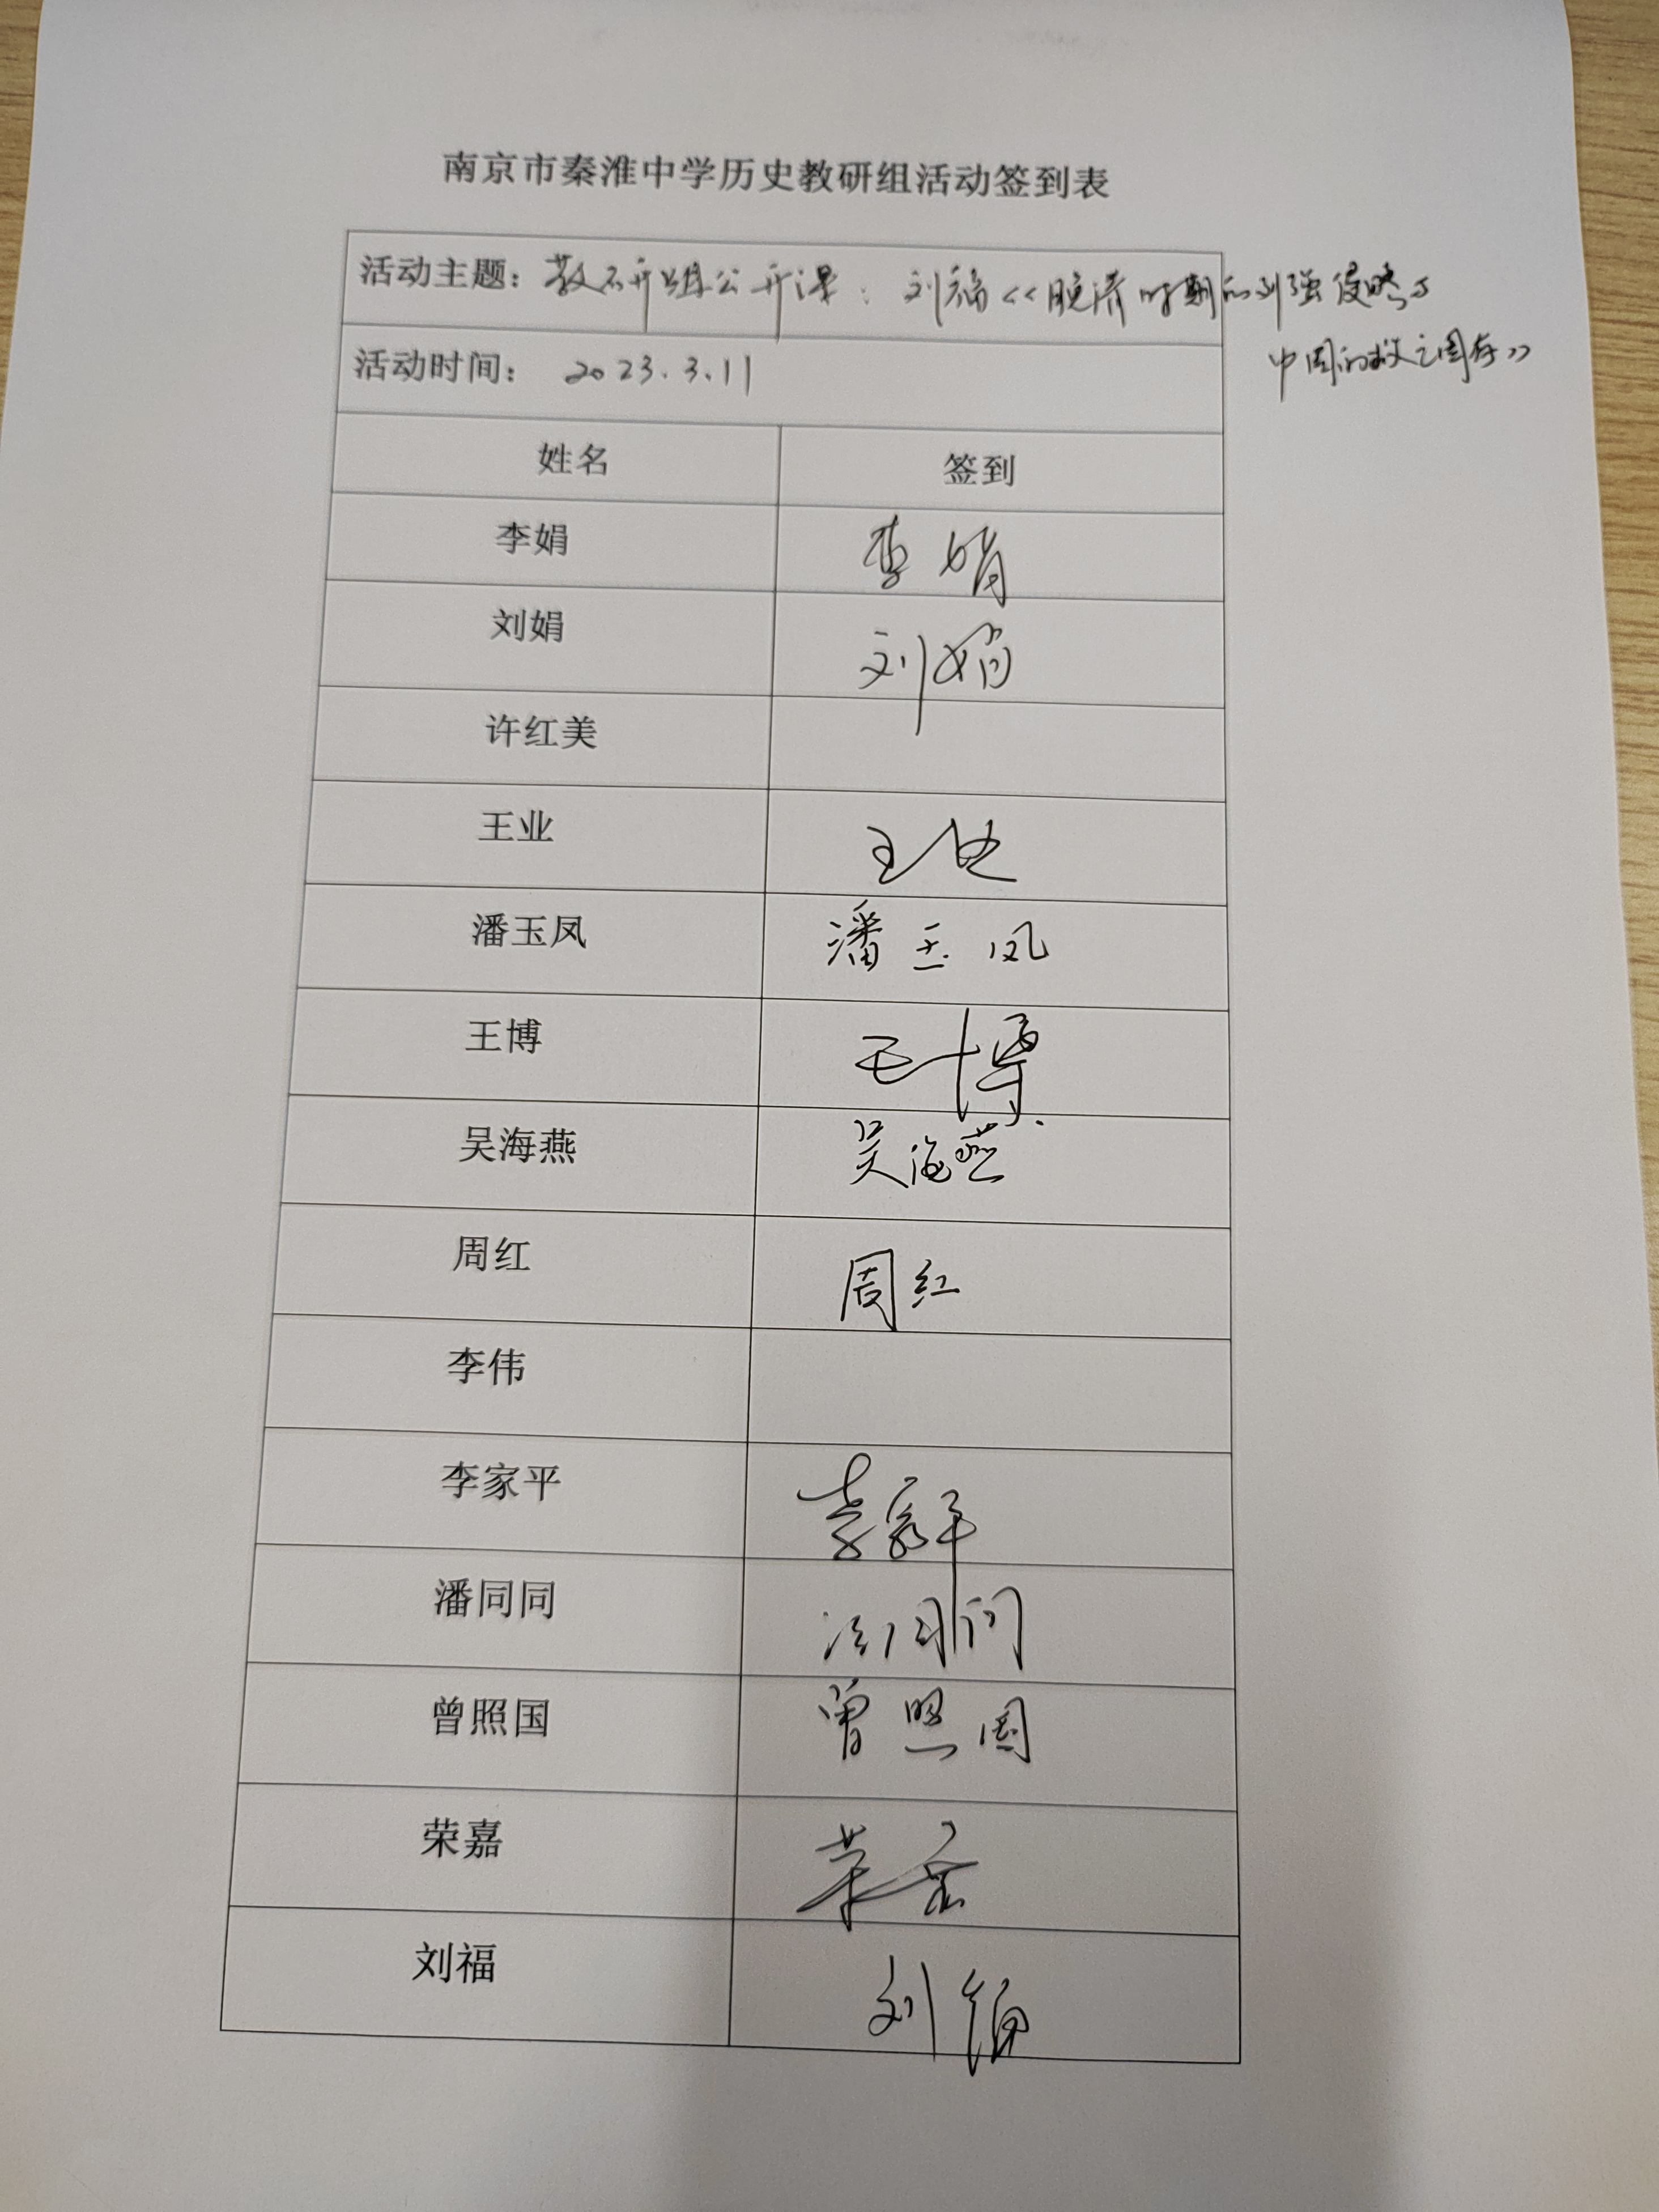 南京市秦淮中学历史教研组活动签到表
活动主题：教研组公开课：刘福《晚清时期的列强侵略与
中国的救亡图存》
活动时间： 2023.3.11
姓名 签到
李娟 李娟
刘娟 刘娟
许红美
王业 王业
潘玉凤 潘玉凤
王博 王博
吴海燕 吴海燕
周红 周红
李伟
李家平 李家平
潘同同 潘同同
曾照国 曾照国
荣嘉 荣嘉
刘福 刘福